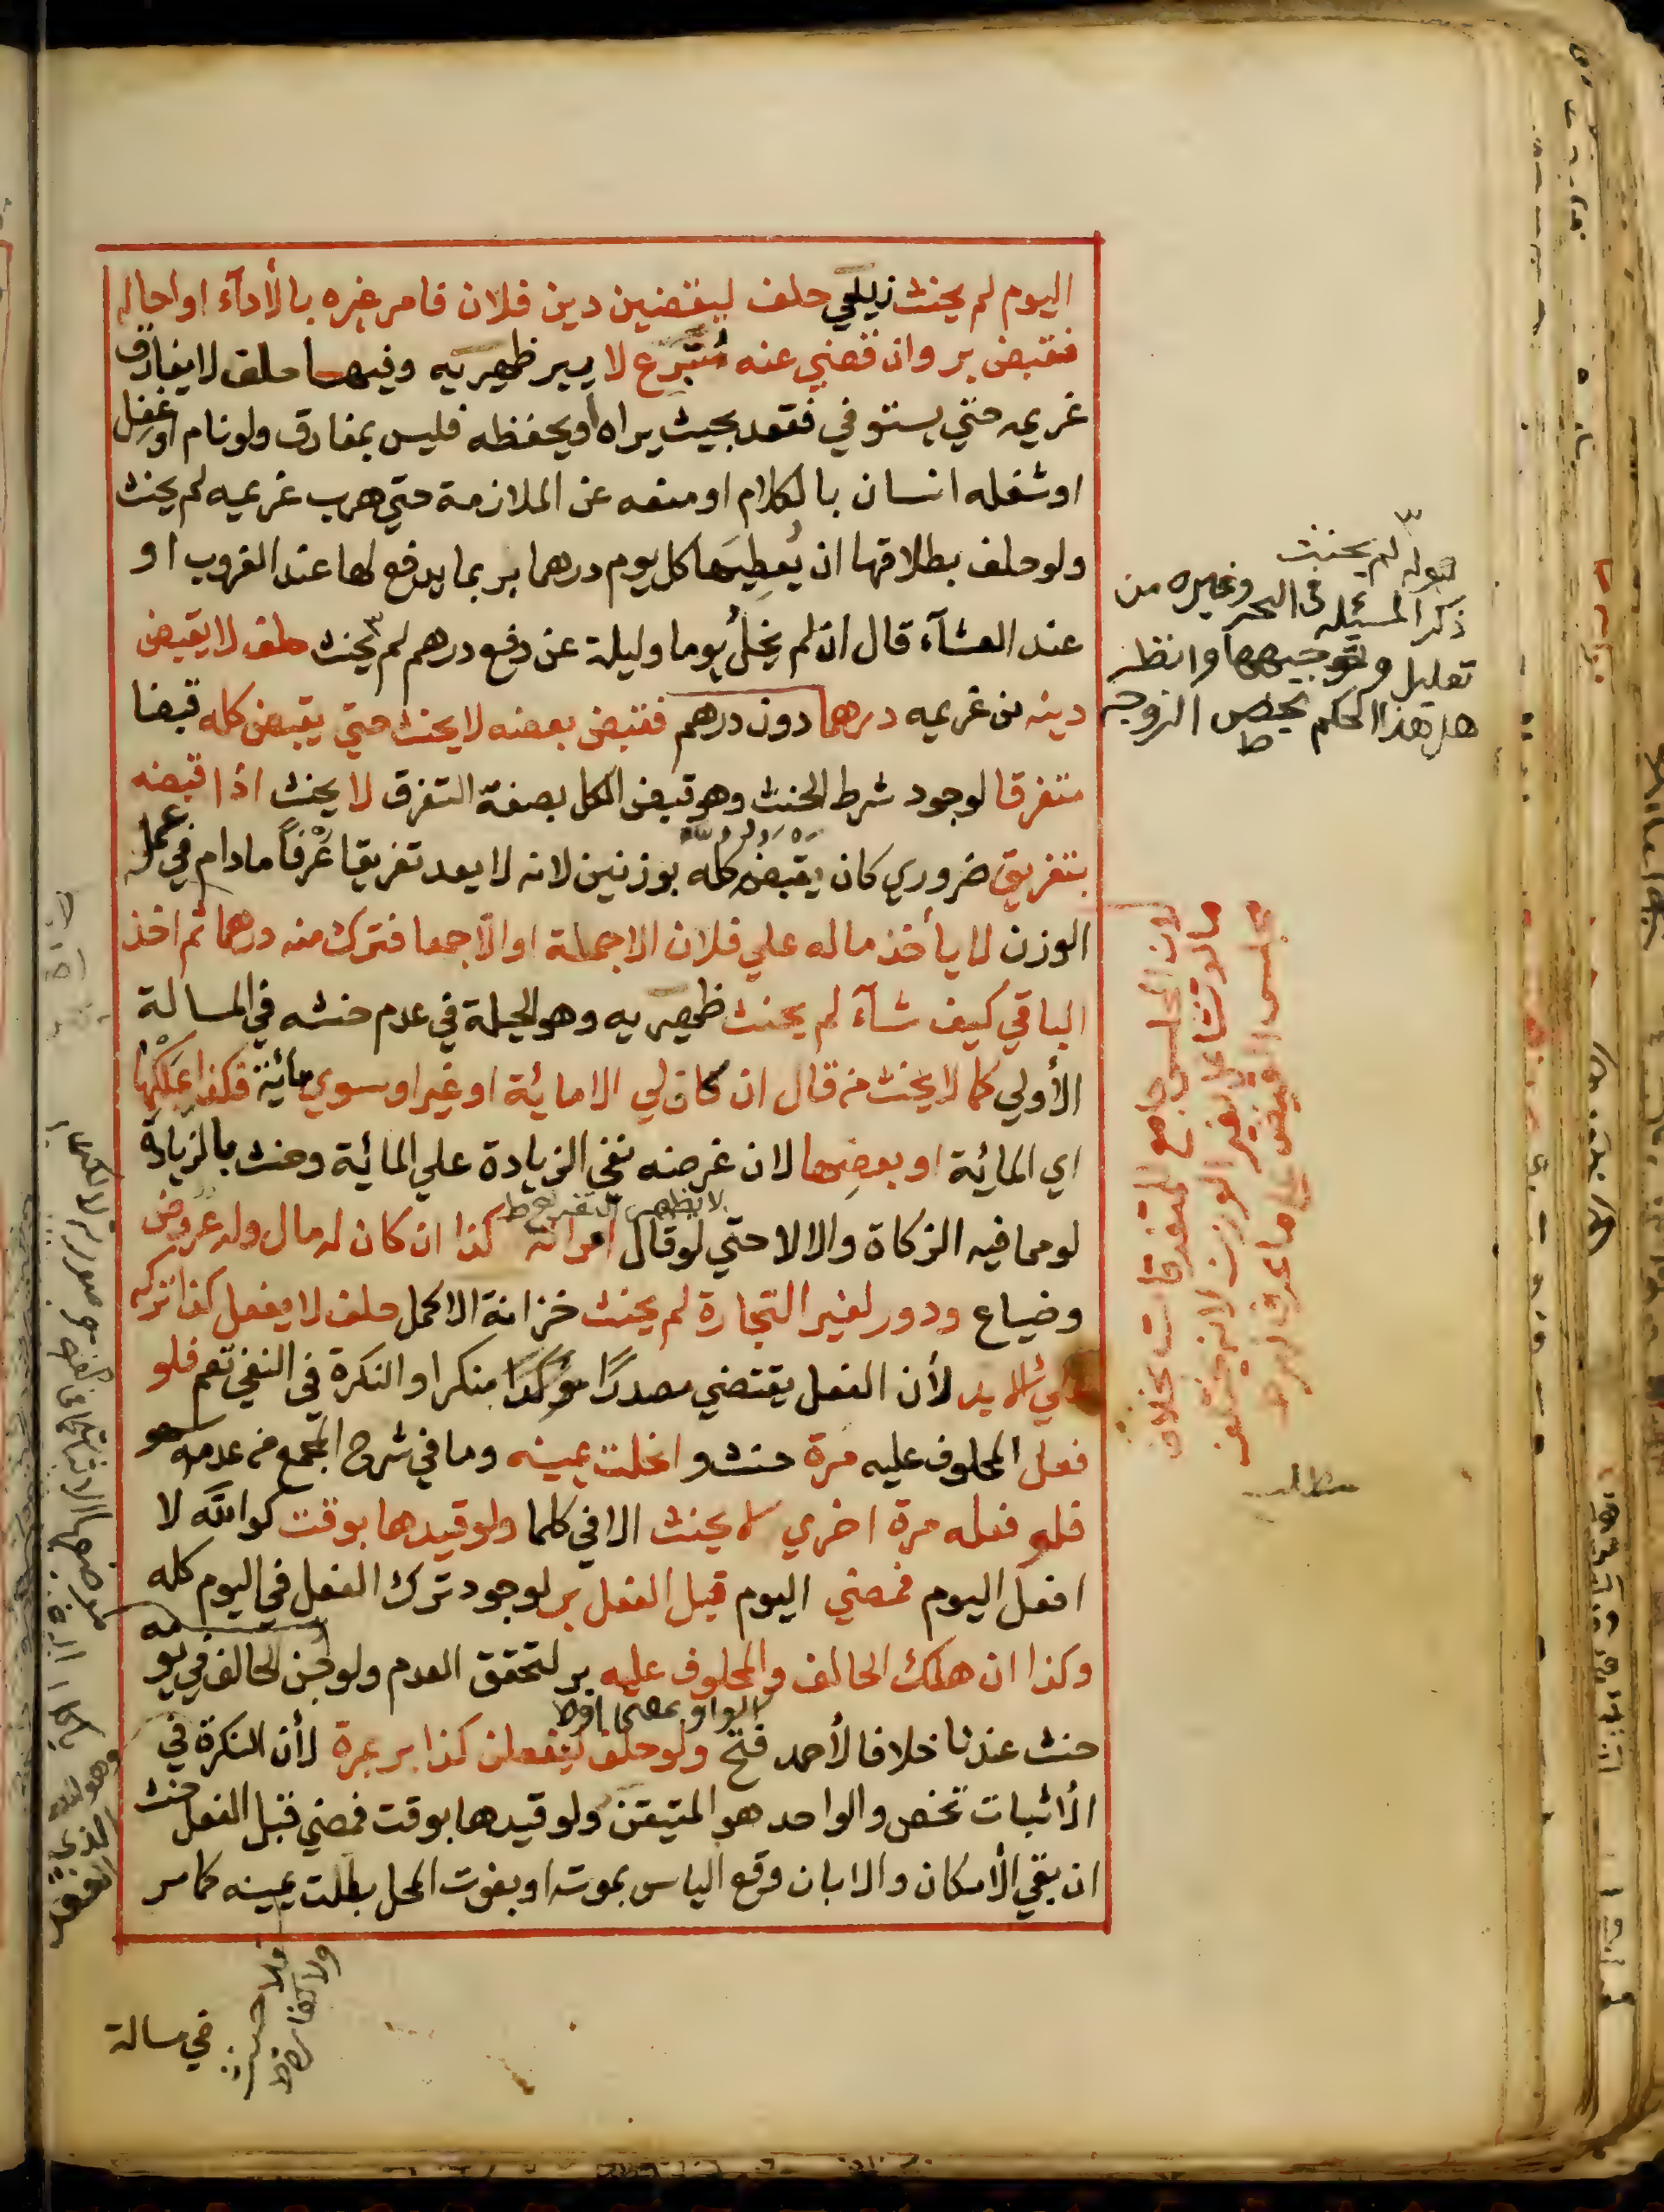 اليوم لم يحنث زيلعي حلف ليقضين دين فلان فامر غيره بالأدآء او احاله
فقبض بر وان قضي عنه متبرع لا يبر ظهيريه وفيها حلف لا يفارق
غريمه حتي يستوفي فقعد بحيث يراه اويحفظه فليس بمفارق ولونام اوغفل
اوشغله انسان بالكلام اومنعه عن الملازمة حتي هرب غريمه لم يحنث
ولو حلف بطلاقها ان يُعطِيَها كل يوم درهما بر بما يدفع لها عند الغروب او
عند العشآء قال ان لم يخل يوما وليلة عن دفع درهم لم يحنث حلف لا يقبض
دينه من غريمه درهما دون درهم فقبض بعضه لا يحنث حتي يقبض كله قبضا
متفرقا لوجود شرط الحنث وهو قبض الكل بصفة التفرق لا يحنث اذا قبضه
بتفريق ضروري كان يقبض كله بوزنين لانه لا يعد تفريقا عُرْفاً مادام في عمل
الوزن لا يأخذ ماله علي فلان الاجملة اوالاجمعا فترك منه درهما ثم اخذ
الباقي كيف شآء لم يحنث ظهيريه وهو الحيلة في عدم حنثه في المسالة
الأولي كما لا يحنث من قال ان كان لي الا مائة او غير او سوي مائة فكذا بملكها
اي المائة او بعضِها لان غرضه نفي الزيادة علي المائة وحنث بالزيادة
لا يظهر التفريع ط
لومما فيه الزكاة والالا حتي لوقال امراته كذا ان كان له مال وله عروض
وضياع ودور لغير التجارة لم يحنث خزانة الاكمل حلف لا يفعل كذا تركه
علي الابد لأن الفعل يقتضي مصدرًا مؤكدًا منكرا والنكرة في النفي تعم فلو
فعل المحلوف عليه مرة حنث و انحلت يمينه وما في شرح المجمع من عدمه سهو
فلو فعله مرة اخري لا يحنث الا في كلما ولو قيدها بوقت كوالله لا
افعل اليوم فمضي اليوم قبل الفعل بر لوجود ترك الفعل في اليوم كله
وكذا ان هلك الحالف والمحلوف عليه بر لتحقق العدم ولو جن الحالف في يومه
الواو بمعني او ط
حنث عندنا خلافا لأحمد فتح ولو حلف ليفعلن كذا بر بمرة لأن النكرة في
الأثبات تخص والواحد هو المتيقن ولو قيدها بوقت فمضي قبل الفعل حنث
ان بقي الأمكان والا بان وقع الياس بموته او بفوت المحل بطلت يمينه كما مر
في مسالة
فلا حنث
ولا كفارة ط
قوله لم يحنث
ذكر المسئله في البحر وغيره من
تعليل وتوجيهها وانظر
هل هذا الحكم يخص الزوجه
ط
لان المجلس جامع للمتفرقات بخلاف
مالو تشاغل بغير الوزن لانه يختلف
مجلس القبض
مطلب